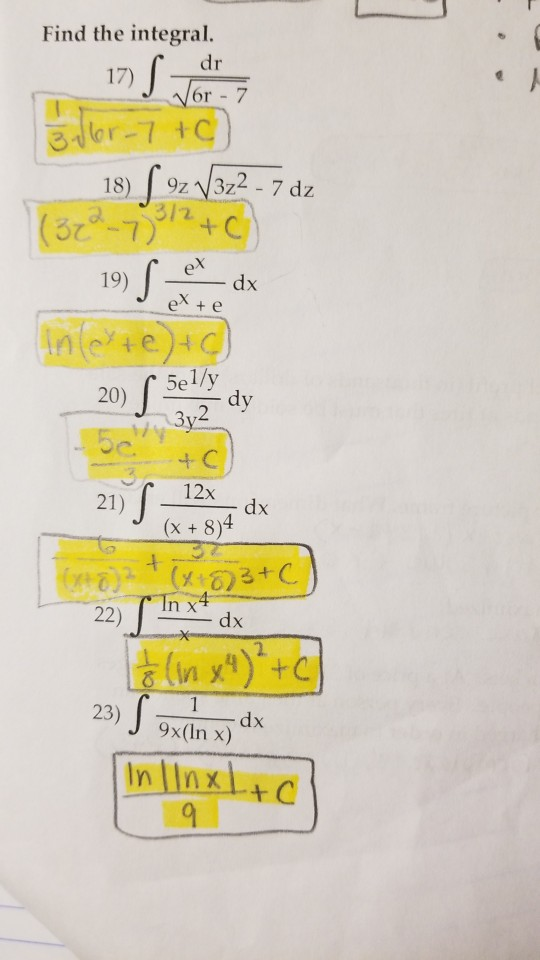 Find the integral.
17) ∫ dr / √(6r - 7)
1/3 √(6r-7) + C
18) ∫ 9z √(3z² - 7) dz
(3z²-7)^3/2 + C
19) ∫ e^x / (e^x + e) dx
ln(e^x + e) + C
20) ∫ 5e^1/y / 3y² dy
- 5e^1/y / 3 + C
21) ∫ 12x / (x + 8)⁴ dx
6 / (x+8)² + 32 / (x+8)3 + C
22) ∫ ln x⁴ / x dx
1/8 (ln x⁴)² + C
23) ∫ 1 / 9x(ln x) dx
ln |ln x| / 9 + C